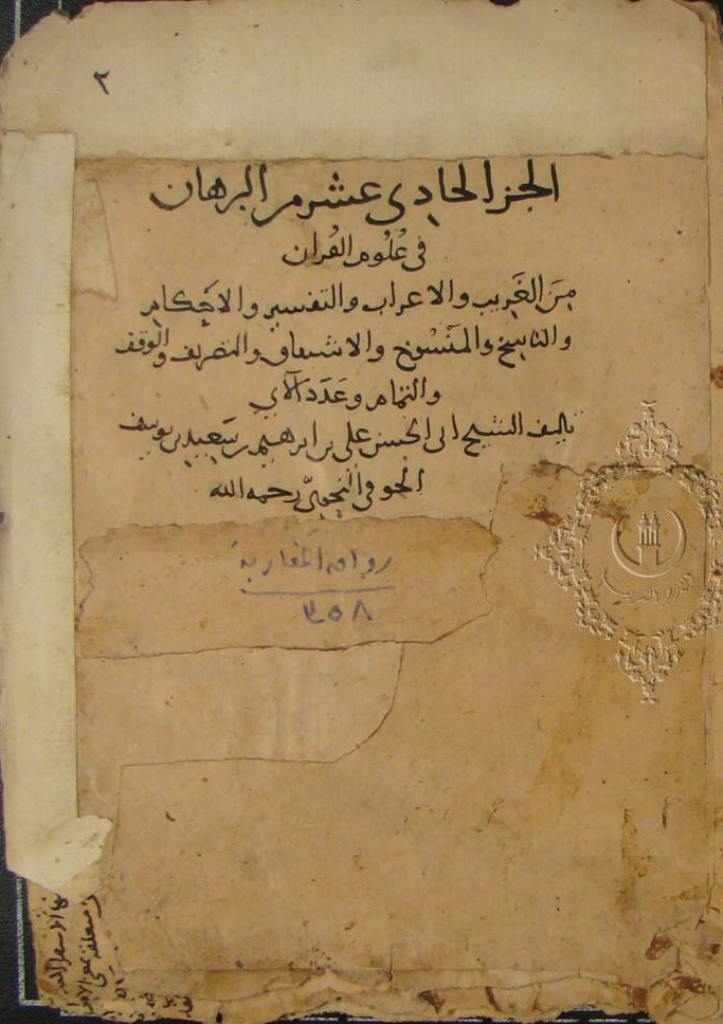 ٢
الجز الحادي عشر من البرهان
في عُلُوم القُران
مِنَ الغَريب والاعراب والتفسير والاحكام
والناسخ والمنسُوخ والاشتقاق والتصريف والوقف
والتمام وعَدَد الآي
تاليف الشيخ ابي الحسن علي بن ابرهيم بن سَعيد بن يوسف
الحوفي النحويّ رحمه الله
رواق المغاربة
٣٥٨